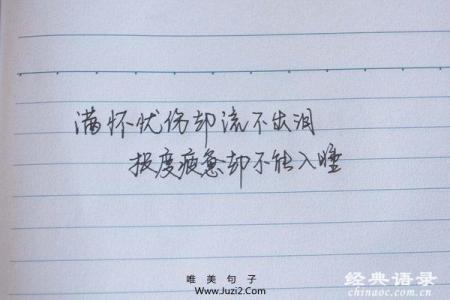 满怀忧伤却流不出泪
极度疲惫却不能入睡
唯美句子
www.Juzi2.Com
经典语录
chinaoc.com.cn